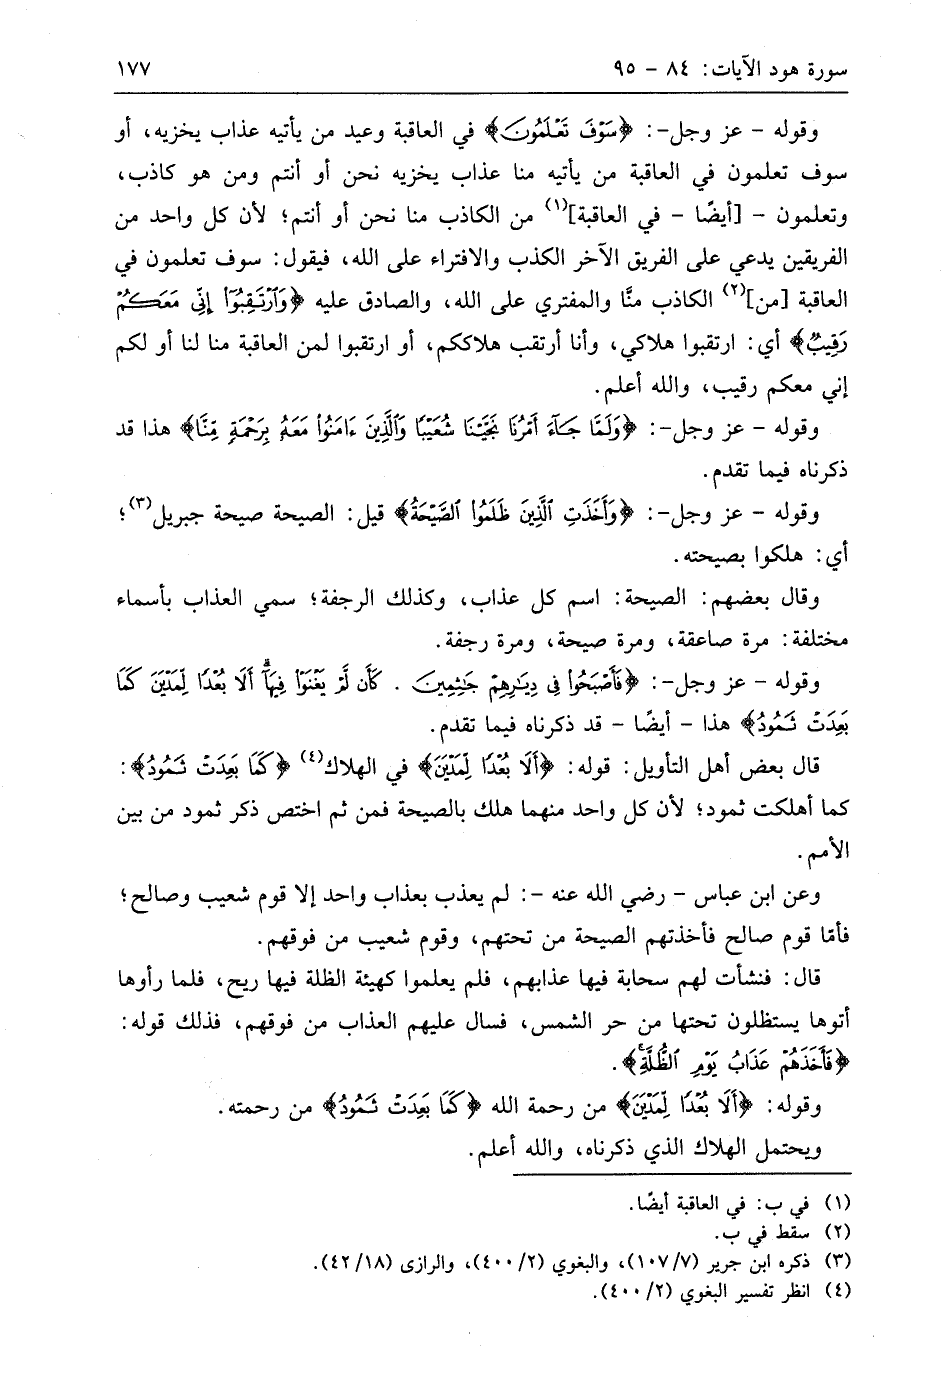 سورة هود الآيات: ٨٤ - ٩٥ ١٧٧
وقوله - عز وجل-: ﴿سَوْفَ تَعْلَمُونَ﴾ في العاقبة وعيد من يأتيه عذاب يخزيه، أو
سوف تعلمون في العاقبة من يأتيه منا عذاب يخزيه نحن أو أنتم ومن هو كاذب،
وتعلمون - [أيضًا - في العاقبة](١) من الكاذب منا نحن أو أنتم؛ لأن كل واحد من
الفريقين يدعي على الفريق الآخر الكذب والافتراء على الله، فيقول: سوف تعلمون في
العاقبة [من](٢) الكاذب منَّا والمفتري على الله، والصادق عليه ﴿وَٱرْتَقِبُوٓا۟ إِنِّى مَعَكُمْ
رَقِيبٌ﴾ أي: ارتقبوا هلاكي، وأنا أرتقب هلاككم، أو ارتقبوا لمن العاقبة منا لنا أو لكم
إني معكم رقيب، والله أعلم.
وقوله - عز وجل-: ﴿وَلَمَّا جَآءَ أَمْرُنَا نَجَّيْنَا شُعَيْبًا وَٱلَّذِينَ ءَامَنُوا۟ مَعَهُۥ بِرَحْمَةٍ مِّنَّا﴾ هذا قد
ذكرناه فيما تقدم.
وقوله - عز وجل-: ﴿وَأَخَذَتِ ٱلَّذِينَ ظَلَمُوا۟ ٱلصَّيْحَةُ﴾ قيل: الصيحة صيحة جبريل(٣)؛
أي: هلكوا بصيحته.
وقال بعضهم: الصيحة: اسم كل عذاب، وكذلك الرجفة؛ سمي العذاب بأسماء
مختلفة: مرة صاعقة، ومرة صيحة، ومرة رجفة.
وقوله - عز وجل-: ﴿فَأَصْبَحُوا۟ فِى دِيَـٰرِهِمْ جَـٰثِمِينَ . كَأَن لَّمْ يَغْنَوْا۟ فِيهَآ ۗ أَلَا بُعْدًا لِّمَدْيَنَ كَمَا
بَعِدَتْ ثَمُودُ﴾ هذا - أيضًا - قد ذكرناه فيما تقدم.
قال بعض أهل التأويل: قوله: ﴿أَلَا بُعْدًا لِّمَدْيَنَ﴾ في الهلاك(٤) ﴿كَمَا بَعِدَتْ ثَمُودُ﴾:
كما أهلكت ثمود؛ لأن كل واحد منهما هلك بالصيحة فمن ثم اختص ذكر ثمود من بين
الأمم.
وعن ابن عباس - رضي الله عنه -: لم يعذب بعذاب واحد إلا قوم شعيب وصالح؛
فأمّا قوم صالح فأخذتهم الصيحة من تحتهم، وقوم شعيب من فوقهم.
قال: فنشأت لهم سحابة فيها عذابهم، فلم يعلموا كهيئة الظلة فيها ريح، فلما رأوها
أتوها يستظلون تحتها من حر الشمس، فسال عليهم العذاب من فوقهم، فذلك قوله:
﴿فَأَخَذَهُمْ عَذَابُ يَوْمِ ٱلظُّلَّةِ ۚ﴾.
وقوله: ﴿أَلَا بُعْدًا لِّمَدْيَنَ﴾ من رحمة الله ﴿كَمَا بَعِدَتْ ثَمُودُ﴾ من رحمته.
ويحتمل الهلاك الذي ذكرناه، والله أعلم.
(١) في ب: في العاقبة أيضًا.
(٢) سقط في ب.
(٣) ذكره ابن جرير (١٠٧/٧)، والبغوي (٤٠٠/٢)، والرازى (٤٢/١٨).
(٤) انظر تفسير البغوي (٤٠٠/٢).